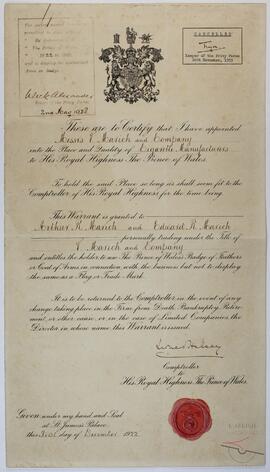 CANCELLED
Keeper of the Privy Purse
2nd May 1938
These are to Certify that I have appointed
Messrs V. Marich and Company
into the Place and Quality of Cigarette Manufacturers
to His Royal Highness The Prince of Wales.
To hold the said Place so long as shall seem fit to the
Comptroller of His Royal Highness for the time being
This Warrant is granted to
Arthur R. Marich and Edward R. Marich
personally trading under the title of
V. Marich and Company
and entitles the holder to use The Prince of Wales's Badge of Feathers
or Coat of Arms in connection with the business but not to display
the same as a Flag or Trade Mark.
It is to be returned to the Comptroller in the event of any
change taking place in the Firm from Death, Bankruptcy, Retire-
ment, or other cause, or in the case of Limited Companies the
Director in whose name this Warrant is issued.
Comptroller
to
His Royal Highness The Prince of Wales.
Given under my hand and Seal
at St James's Palace
this day of December 1922